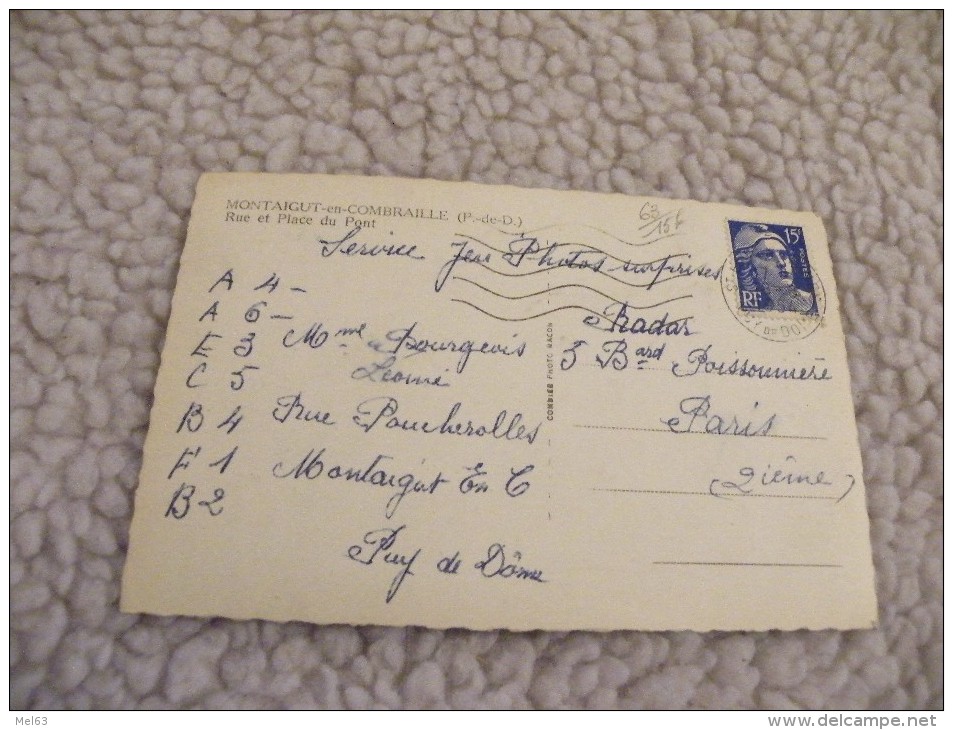 MONTAIGUT-en-COMBRAILLE (P.-de-D.)
Rue et Place du Pont
63/15f
15f
POSTES
RF
Service Jeu Photos surprises
Radar
5 Bard Poissonnière
Paris
(2ième)
A 4 -
A 6 -
E 3
C 5
B 4
F 1
B 2
Mme Bourgeois
Léonie
Rue Poucherolles
Montaigut En C
Puy de Dôme
COMBIER PHOTO MACON
Mel63
www.delcampe.net